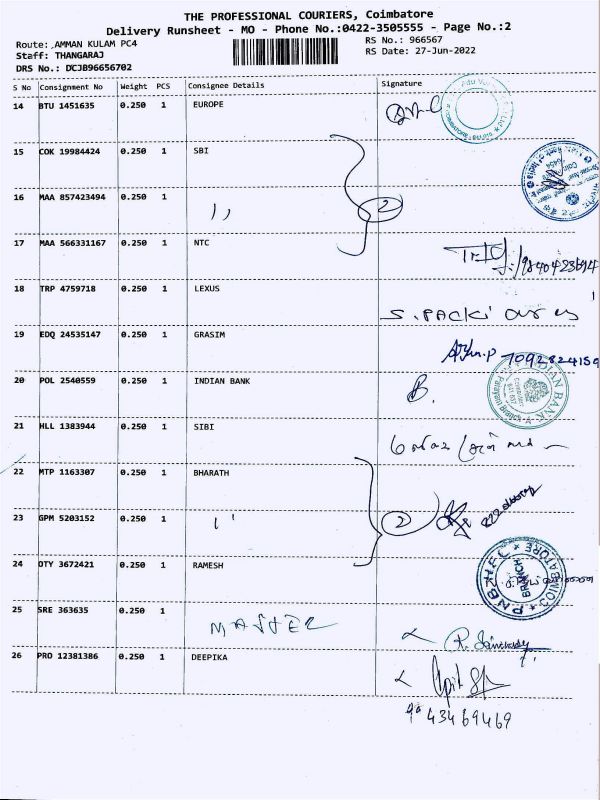 THE PROFESSIONAL COURIERS, Coimbatore
Delivery Runsheet - MO - Phone No.:0422-3505555 - Page No.:2
Route: AMMAN KULAM PC4
RS No.: 966567
Staff: THANGARAJ
RS Date: 27-Jun-2022
DRS No.: DCJB96656702
S No Consignment No Weight PCS Consignee Details Signature
14 BTU 1451635 0.250 1 EUROPE
15 COK 19984424 0.250 1 SBI
16 MAA 857423494 0.250 1 ,, 2
17 MAA 566331167 0.250 1 NTC
18 TRP 4759718 0.250 1 LEXUS S. PACKI
19 EDQ 24535147 0.250 1 GRASIM
7092824159
20 POL 2540559 0.250 1 INDIAN BANK B.
INDIAN BANK
21 HLL 1383944 0.250 1 SIBI
22 MTP 1163307 0.250 1 BHARATH
23 GPM 5203152 0.250 1 ,, 2
24 OTY 3672421 0.250 1 RAMESH
BRANCH
COIMBATORE
25 SRE 363635 0.250 1 MASTER
26 PRO 12381386 0.250 1 DEEPIKA
43469469